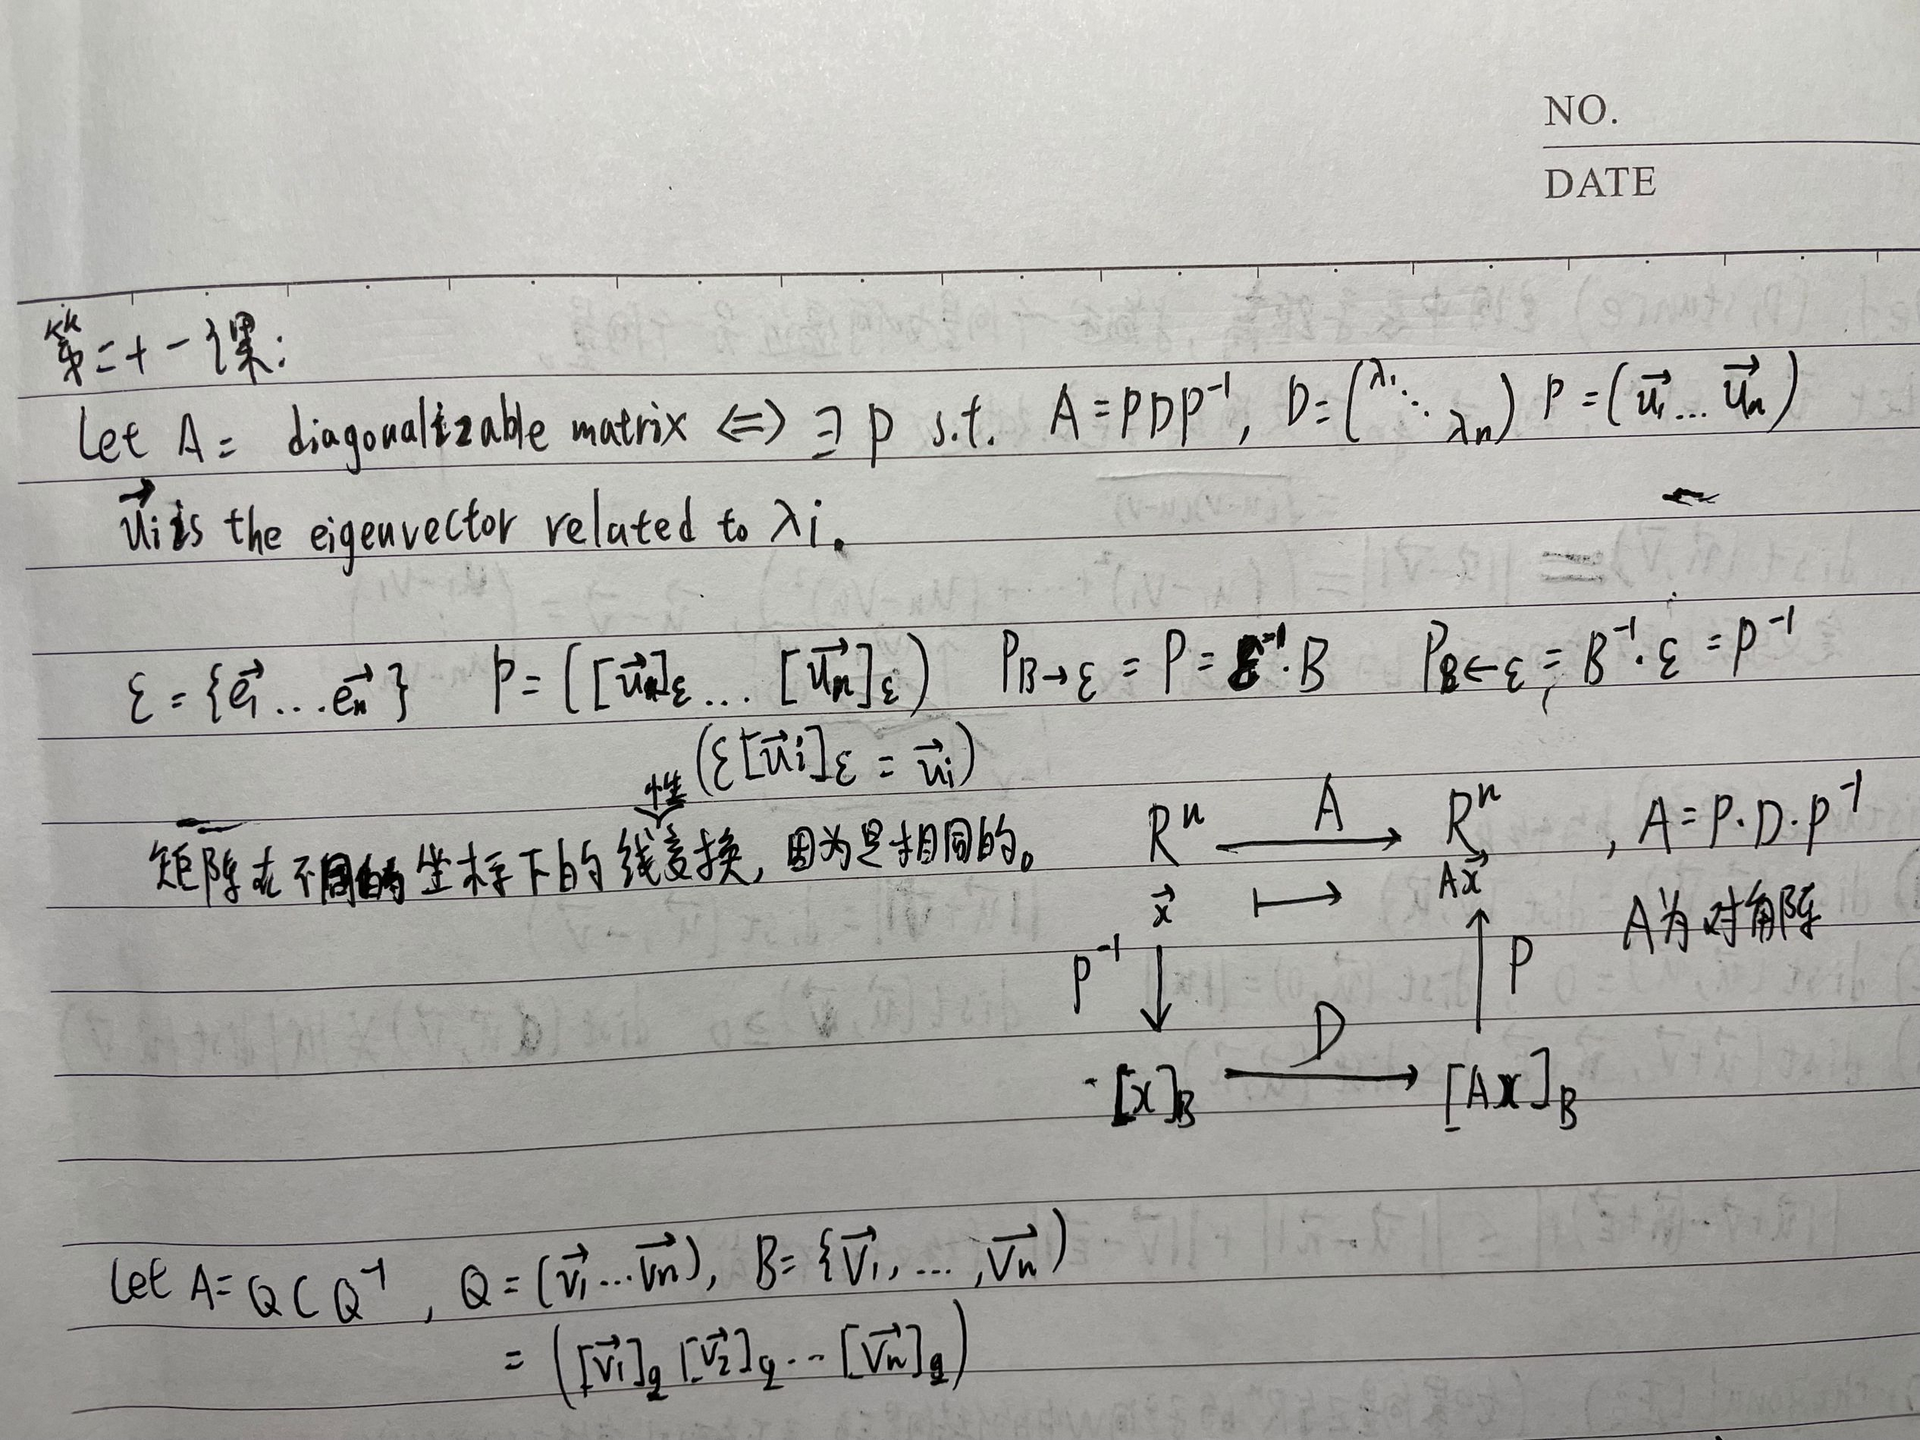 NO.
DATE
第二十一课:
Let A= diagonalizable matrix ⇔ ∃ P s.t. A=PDP⁻¹, D=(λ₁ ⋱ λₙ) P=(u⃗₁...u⃗ₙ)
u⃗ᵢ is the eigenvector related to λi.
ε={e⃗₁...e⃗ₙ} P=([u⃗₁]ε...[u⃗ₙ]ε) P_B→ε = P = ε⁻¹·B P_B←ε = B⁻¹·ε = P⁻¹
(ε[u⃗i]ε = u⃗i)
矩阵在不同的坐标下的线性变换,因为是相同的。
Rⁿ —A→ Rⁿ , A=P·D·P⁻¹
x⃗ ↦ Ax⃗ A为对角阵
P⁻¹ ↓ ↑ P
[x]_B —D→ [Ax]_B
Let A=QCQ⁻¹, Q=(v⃗₁...v⃗ₙ), B={v⃗₁,...,v⃗ₙ)
=([v⃗₁]ε [v⃗₂]ε...[v⃗ₙ]ε)